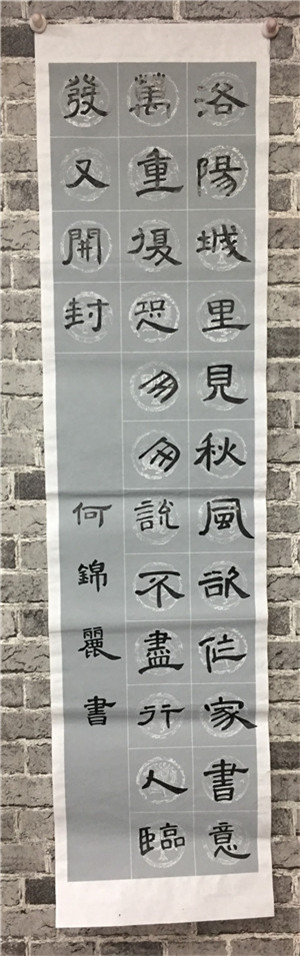 洛陽城里見秋風欲作家書意
萬重復恐匆匆說不盡行人臨
發又開封
何錦麗書